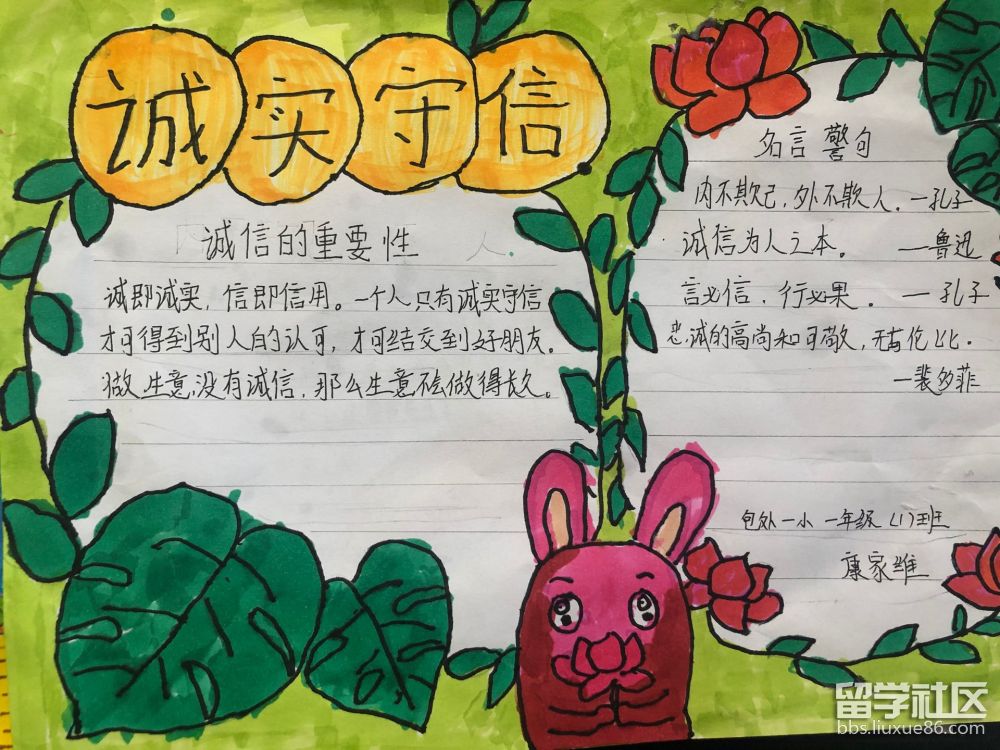 诚实守信
诚信的重要性
诚即诚实，信即信用。一个人只有诚实守信
才可得到别人的认可，才可结交到好朋友。
做生意没有诚信，那么生意不会做得长久。
名言警句
内不欺己，外不欺人。—孔子
诚信为人之本。 —鲁迅
言必信，行必果。—孔子
忠诚的高尚和可敬，无与伦比。
—裴多菲
包处一小 一年级（1）班
康家维
留学社区
bbs.liuxue86.com